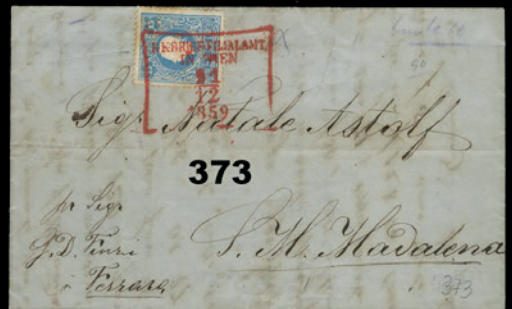 FILIALAMT
IN WIEN
21
12
1859
Sigr Natale Astolfi
373
pr Sigr
G. D. Finzi
Ferrara
S. M. Madalena
373
50